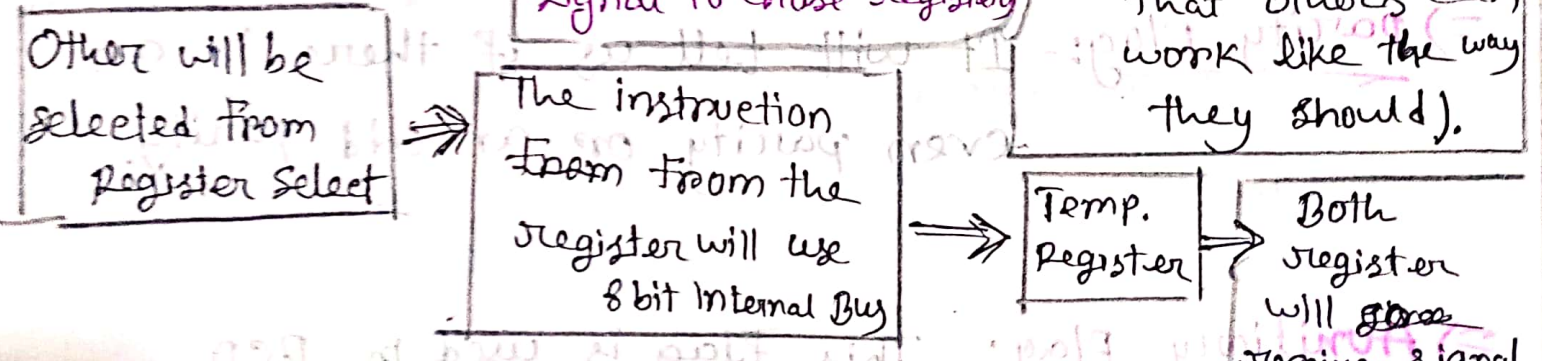 Other will be
selected from
Register Select
The instruction
from from the
register will use
8 bit Internal Bus
work like the way
they should).
Temp.
Register
Both
register
will